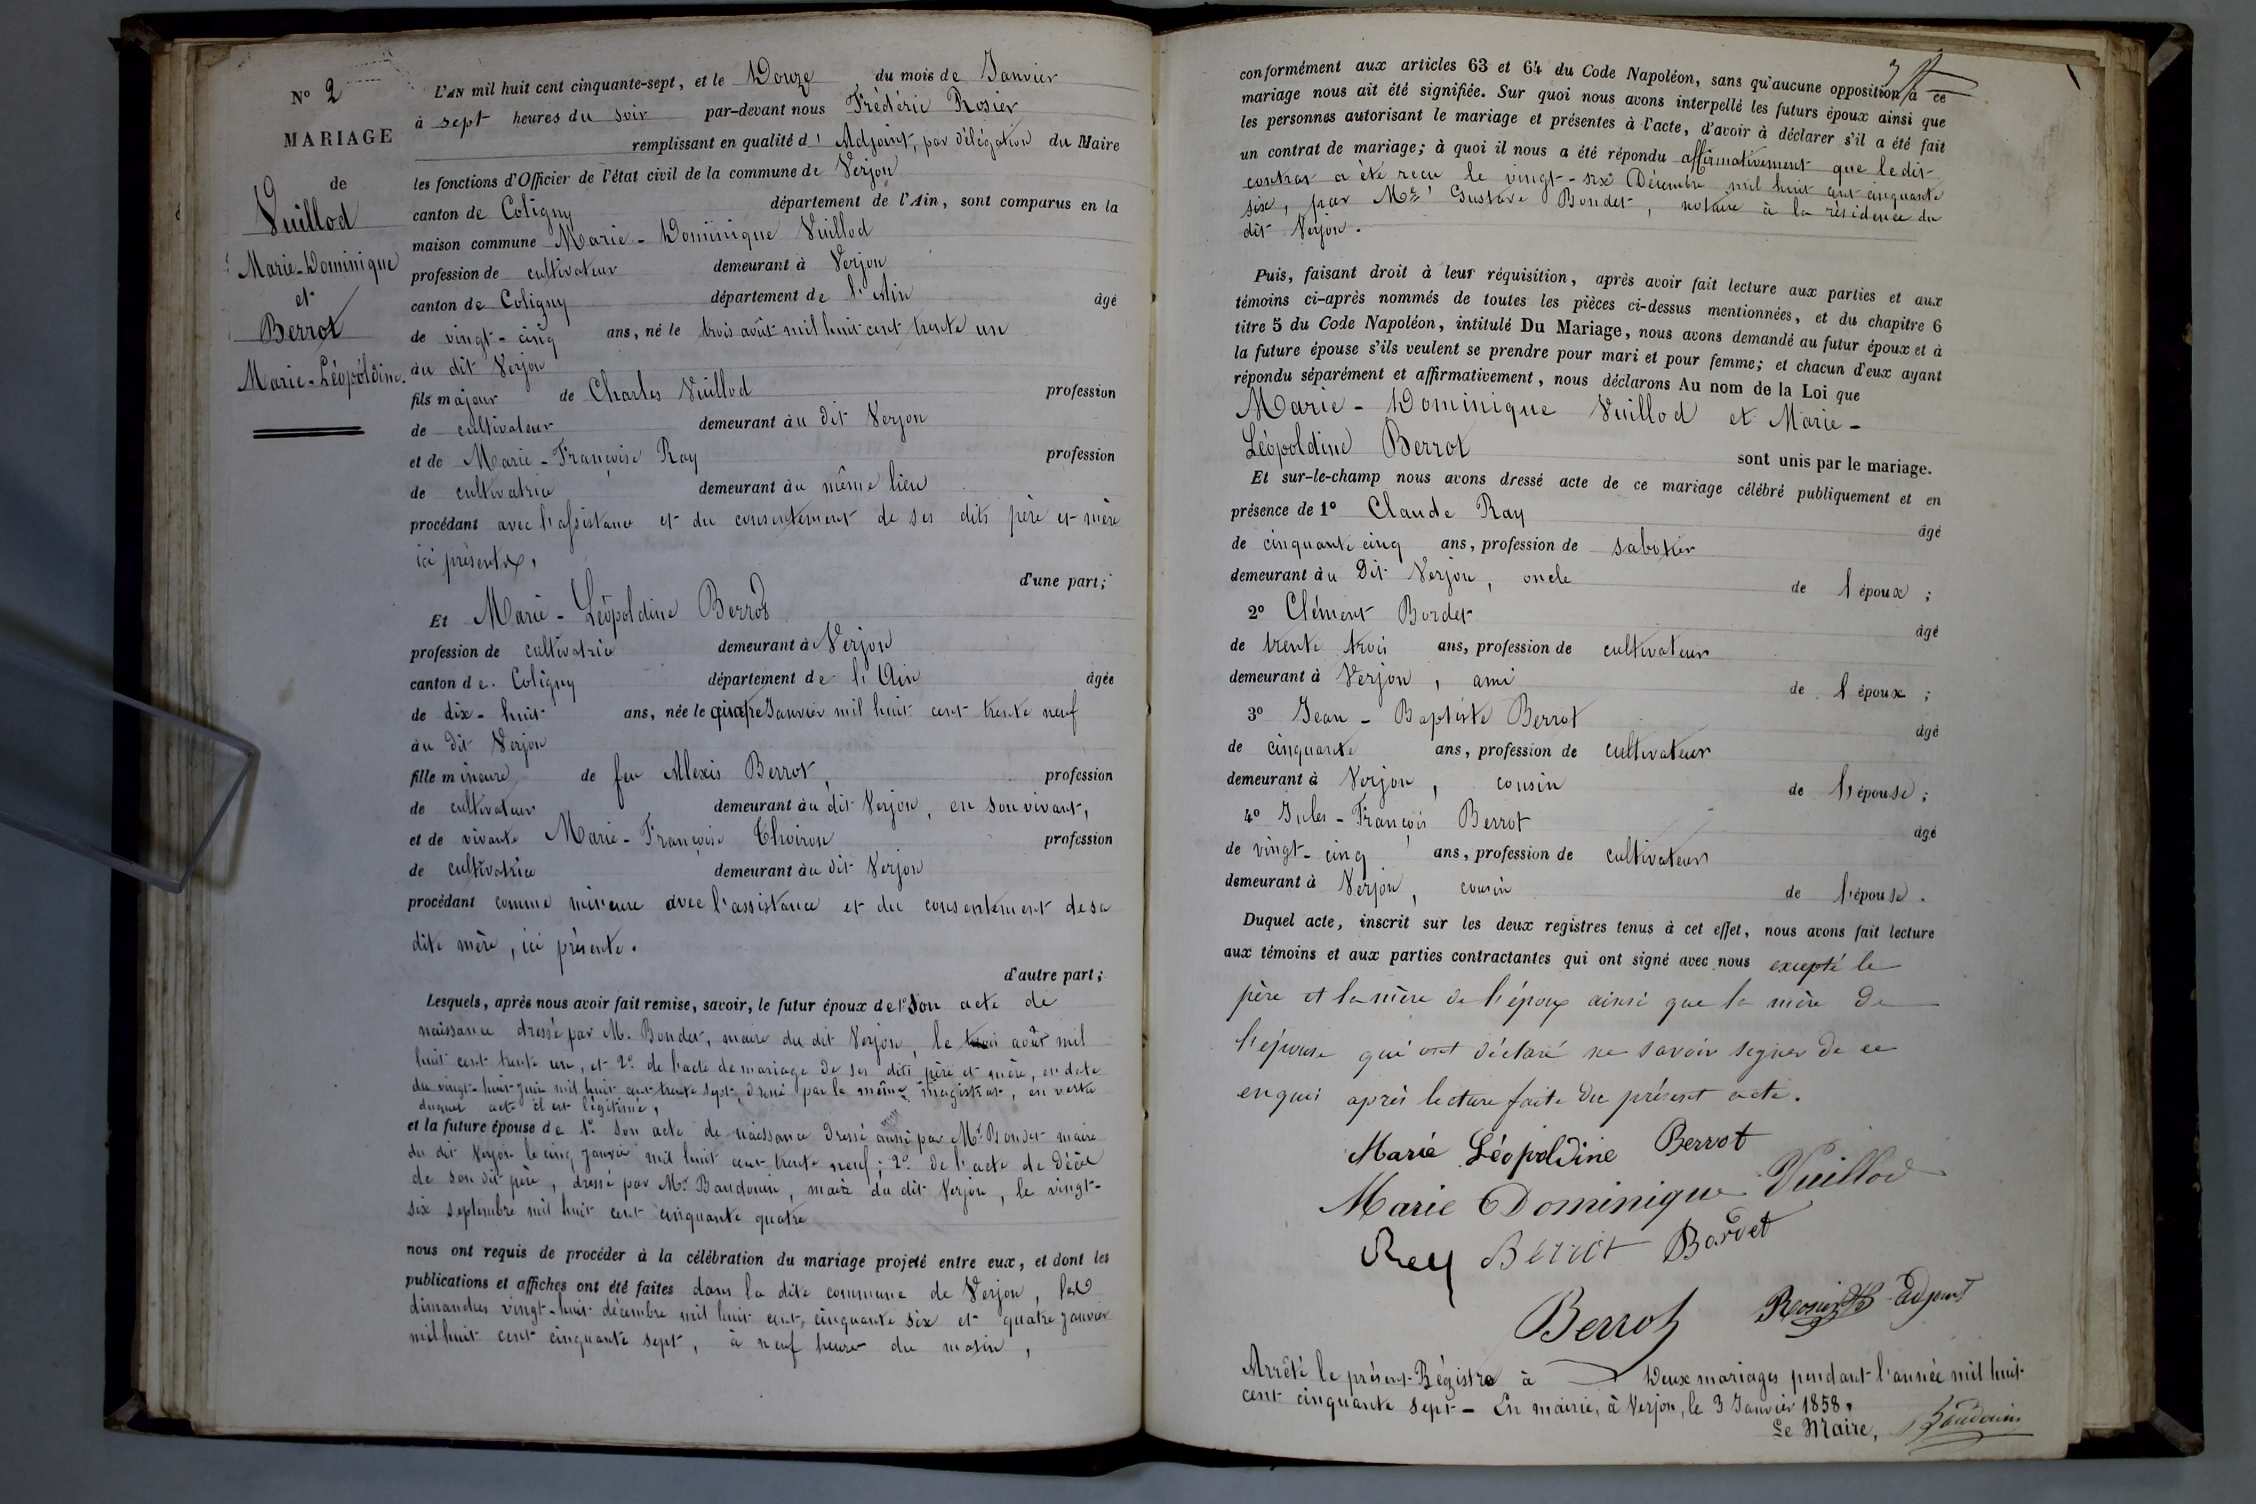 N° 2
MARIAGE
de
Vuillod
Marie-Dominique
et
Berrot
Marie-Léopoldine.
L'AN mil huit cent cinquante-sept, et le Douze du mois de Janvier
à sept heures du soir par-devant nous Frédéric Rosier
remplissant en qualité d' Adjoint, par délégation du Maire
les fonctions d'Officier de l'état civil de la commune de Verjon
canton de Coligny département de l'Ain, sont comparus en la
maison commune Marie-Dominique Vuillod
profession de cultivateur demeurant à Verjon
canton de Coligny département de l'Ain âgé
de vingt-cinq ans, né le trois août mil huit cent trente un
au dit Verjon
fils majeur de Charles Vuillod profession
de cultivateur demeurant au dit Verjon
et de Marie-Françoise Ray profession
de cultivatrice demeurant au même lieu
procédant avec l'assistance et du consentement de ses dits père et mère
ici présents,
d'une part;
Et Marie-Léopoldine Berrot
profession de cultivatrice demeurant à Verjon
canton de Coligny département de l'Ain âgée
de dix-huit ans, née le Janvier mil huit cent trente neuf
au dit Verjon
fille mineure de feu Alexis Berrot, profession
de cultivateur demeurant au dit Verjon, en son vivant,
et de vivante Marie-Françoise Thoiron profession
de cultivatrice demeurant au dit Verjon
procédant comme mineure avec l'assistance et du consentement de sa
dite mère, ici présente.
d'autre part;
Lesquels, après nous avoir fait remise, savoir, le futur époux de 1° son acte de
naissance dressé par M. Bondet, maire du dit Verjon, le trois août mil
huit cent trente un, et 2° de l'acte de mariage de ses dits père et mère, en date
du vingt-huit juin mil huit cent trente sept, dressé par le même magistrat, en vertu
duquel acte il est légitimé,
et la future épouse de 1° son acte de naissance dressé aussi par Mr Bondet maire
du dit Verjon le cinq janvier mil huit cent trente neuf; 2° de l'acte de décès
de son dit père, dressé par Mr Baudouin, maire du dit Verjon, le vingt-
six septembre mil huit cent cinquante quatre
nous ont requis de procéder à la célébration du mariage projeté entre eux, et dont les
publications et affiches ont été faites dans la dite commune de Verjon, les
dimanches vingt-huit décembre mil huit cent cinquante six et quatre janvier
mil huit cent cinquante sept, à neuf heures du matin,
3
conformément aux articles 63 et 64 du Code Napoléon, sans qu'aucune opposition à ce
mariage nous ait été signifiée. Sur quoi nous avons interpellé les futurs époux ainsi que
les personnes autorisant le mariage et présentes à l'acte, d'avoir à déclarer s'il a été fait
un contrat de mariage; à quoi il nous a été répondu affirmativement que le dit
contrat a été reçu le vingt-six Décembre mil huit cent cinquante
six, par Mr Gustave Bondet, notaire à la résidence du
dit Verjon.
Puis, faisant droit à leur réquisition, après avoir fait lecture aux parties et aux
témoins ci-après nommés de toutes les pièces ci-dessus mentionnées, et du chapitre 6
titre 5 du Code Napoléon, intitulé Du Mariage, nous avons demandé au futur époux et à
la future épouse s'ils veulent se prendre pour mari et pour femme; et chacun d'eux ayant
répondu séparément et affirmativement, nous déclarons Au nom de la Loi que
Marie-Dominique Vuillod et Marie-
Léopoldine Berrot
sont unis par le mariage.
Et sur-le-champ nous avons dressé acte de ce mariage célébré publiquement et en
présence de 1° Claude Ray âgé
de cinquante cinq ans, profession de sabotier
demeurant au dit Verjon, oncle de l'époux;
2° Clément Bordet âgé
de trente trois ans, profession de cultivateur
demeurant à Verjon, ami de l'époux;
3° Jean-Baptiste Berrot âgé
de cinquante ans, profession de cultivateur
demeurant à Verjon, cousin de l'épouse;
4° Jules-François Berrot âgé
de vingt-cinq ans, profession de cultivateur
demeurant à Verjon, cousin de l'épouse.
Duquel acte, inscrit sur les deux registres tenus à cet effet, nous avons fait lecture
aux témoins et aux parties contractantes qui ont signé avec nous excepté le
père et la mère de l'époux ainsi que la mère de
l'épouse qui ont déclaré ne savoir signer de ce
enquis après lecture faite du présent acte.
Marie Léopoldine Berrot
Marie Dominique Vuillod
Rey Berrot Bordet
Berrot Rosier adjoint
Arrêté le présent Régistre à Deux mariages pendant l'année mil huit
cent cinquante sept - En mairie, à Verjon, le 3 Janvier 1858.
Le Maire, Baudouin